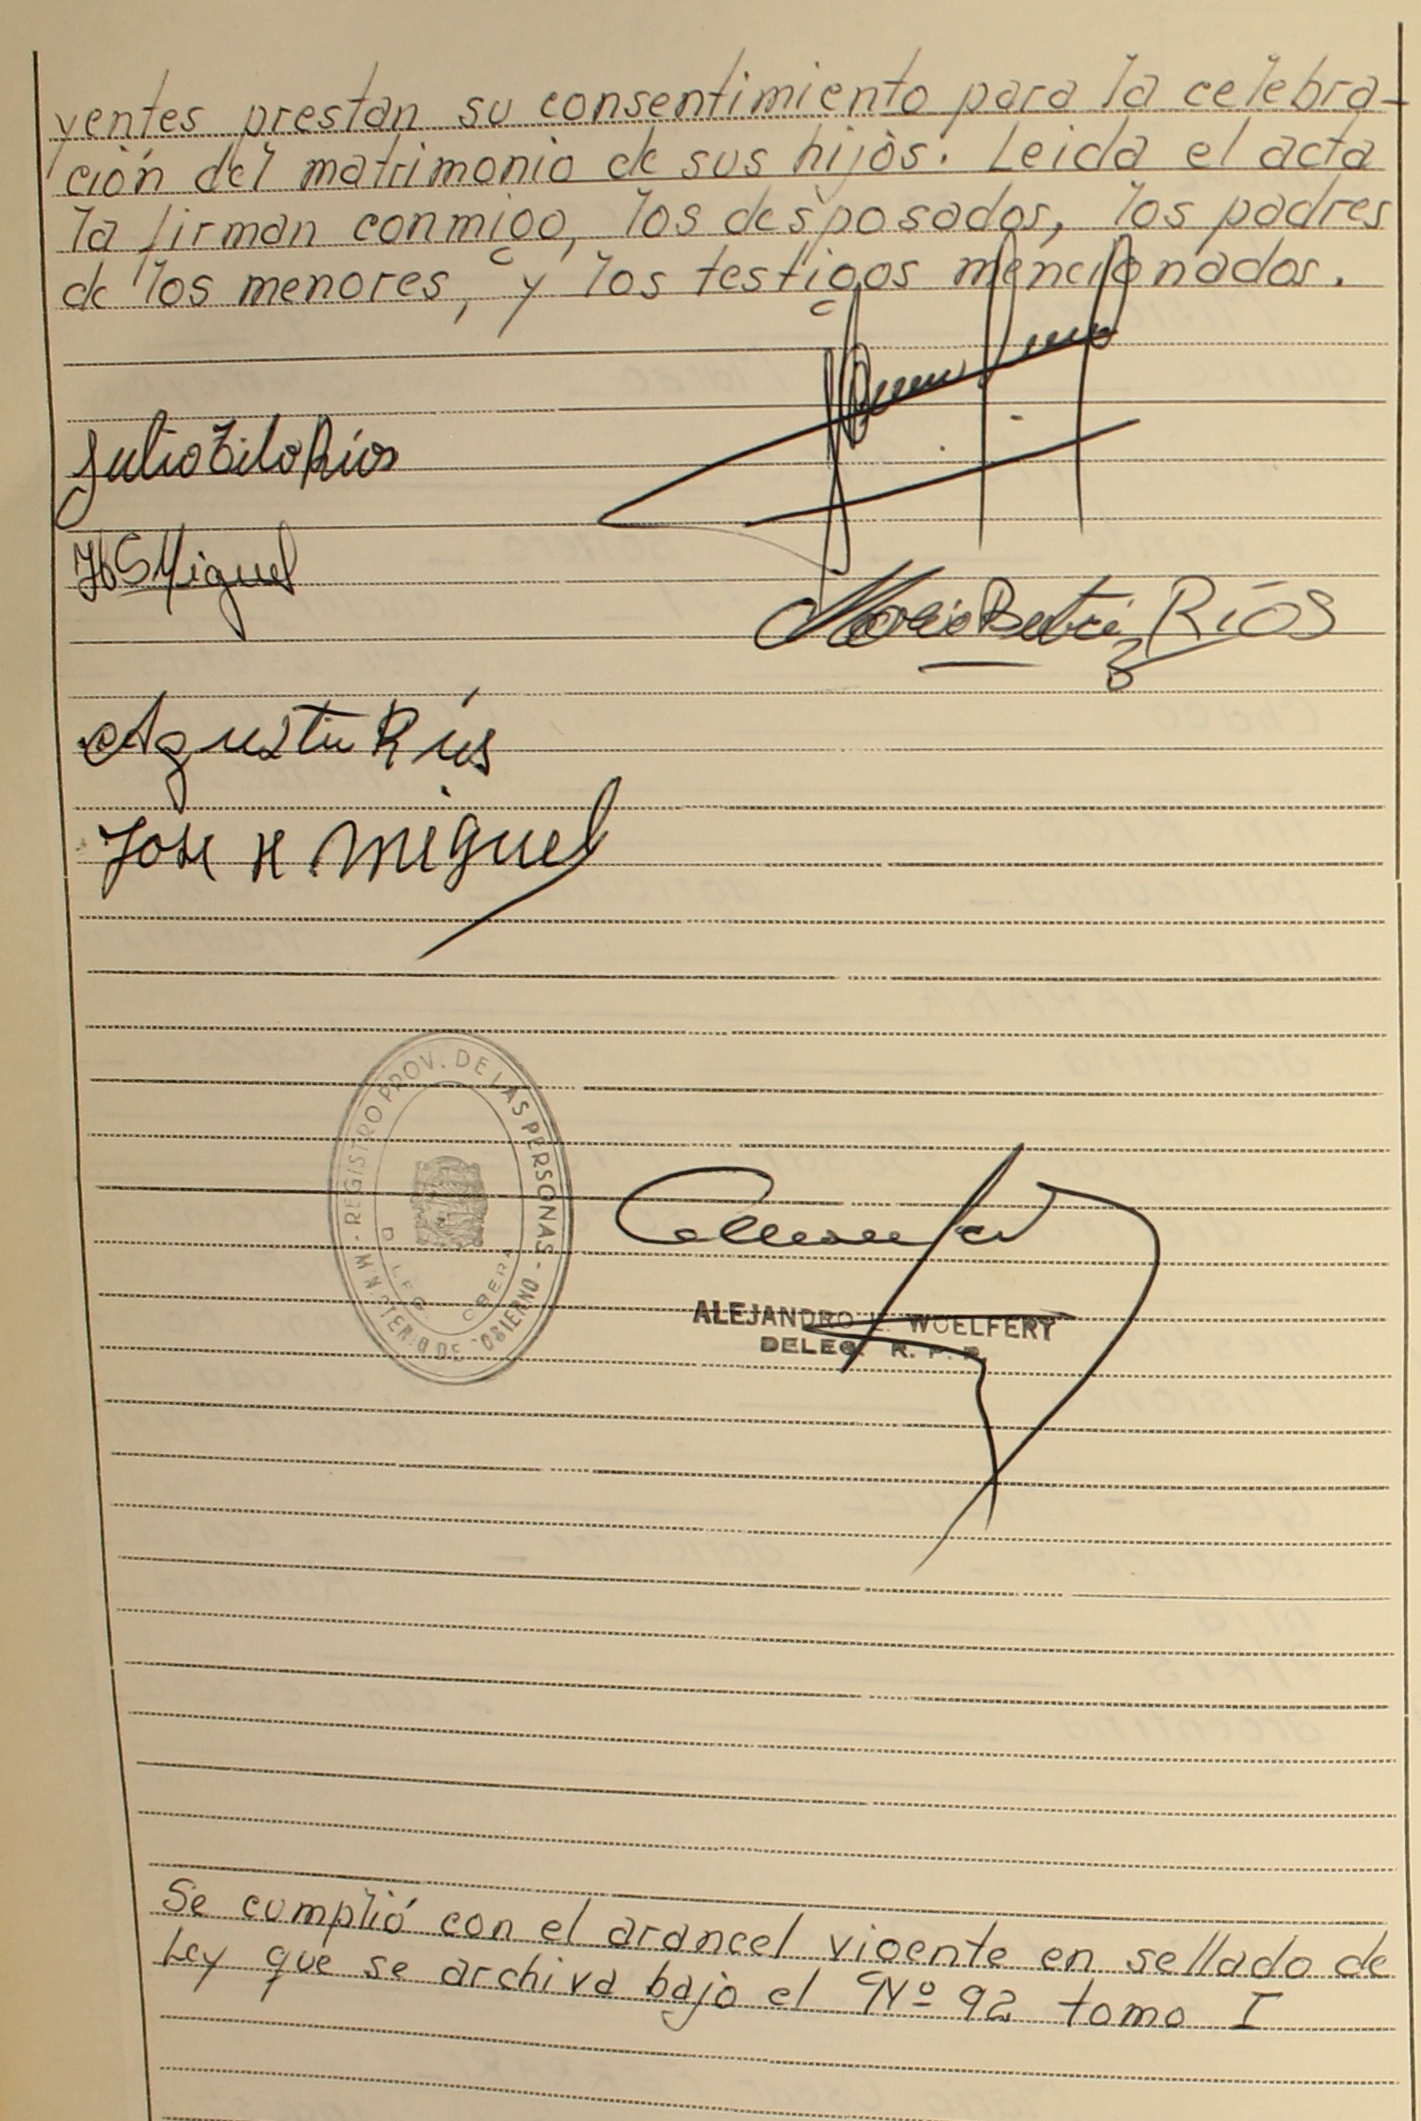 yentes prestan su consentimiento para la celebra-
ción del matrimonio de sus hijos. Leida el acta
la firman conmigo, los desposados, los padres
de los menores, y los testigos mencionados.
Julio Tilo Rios
HS Miguel
Maria Beatriz RÍOS
Agustin Ríos
Jose H. Miguel
REGISTRO PROV. DE LAS PERSONAS - MINISTERIO DE GOBIERNO -
DELEG. OBERA
ALEJANDRO L. WOELFERT
DELEG. R. P. P.
Se cumplió con el arancel vigente en sellado de
Ley que se archiva bajo el Nº 92 tomo I